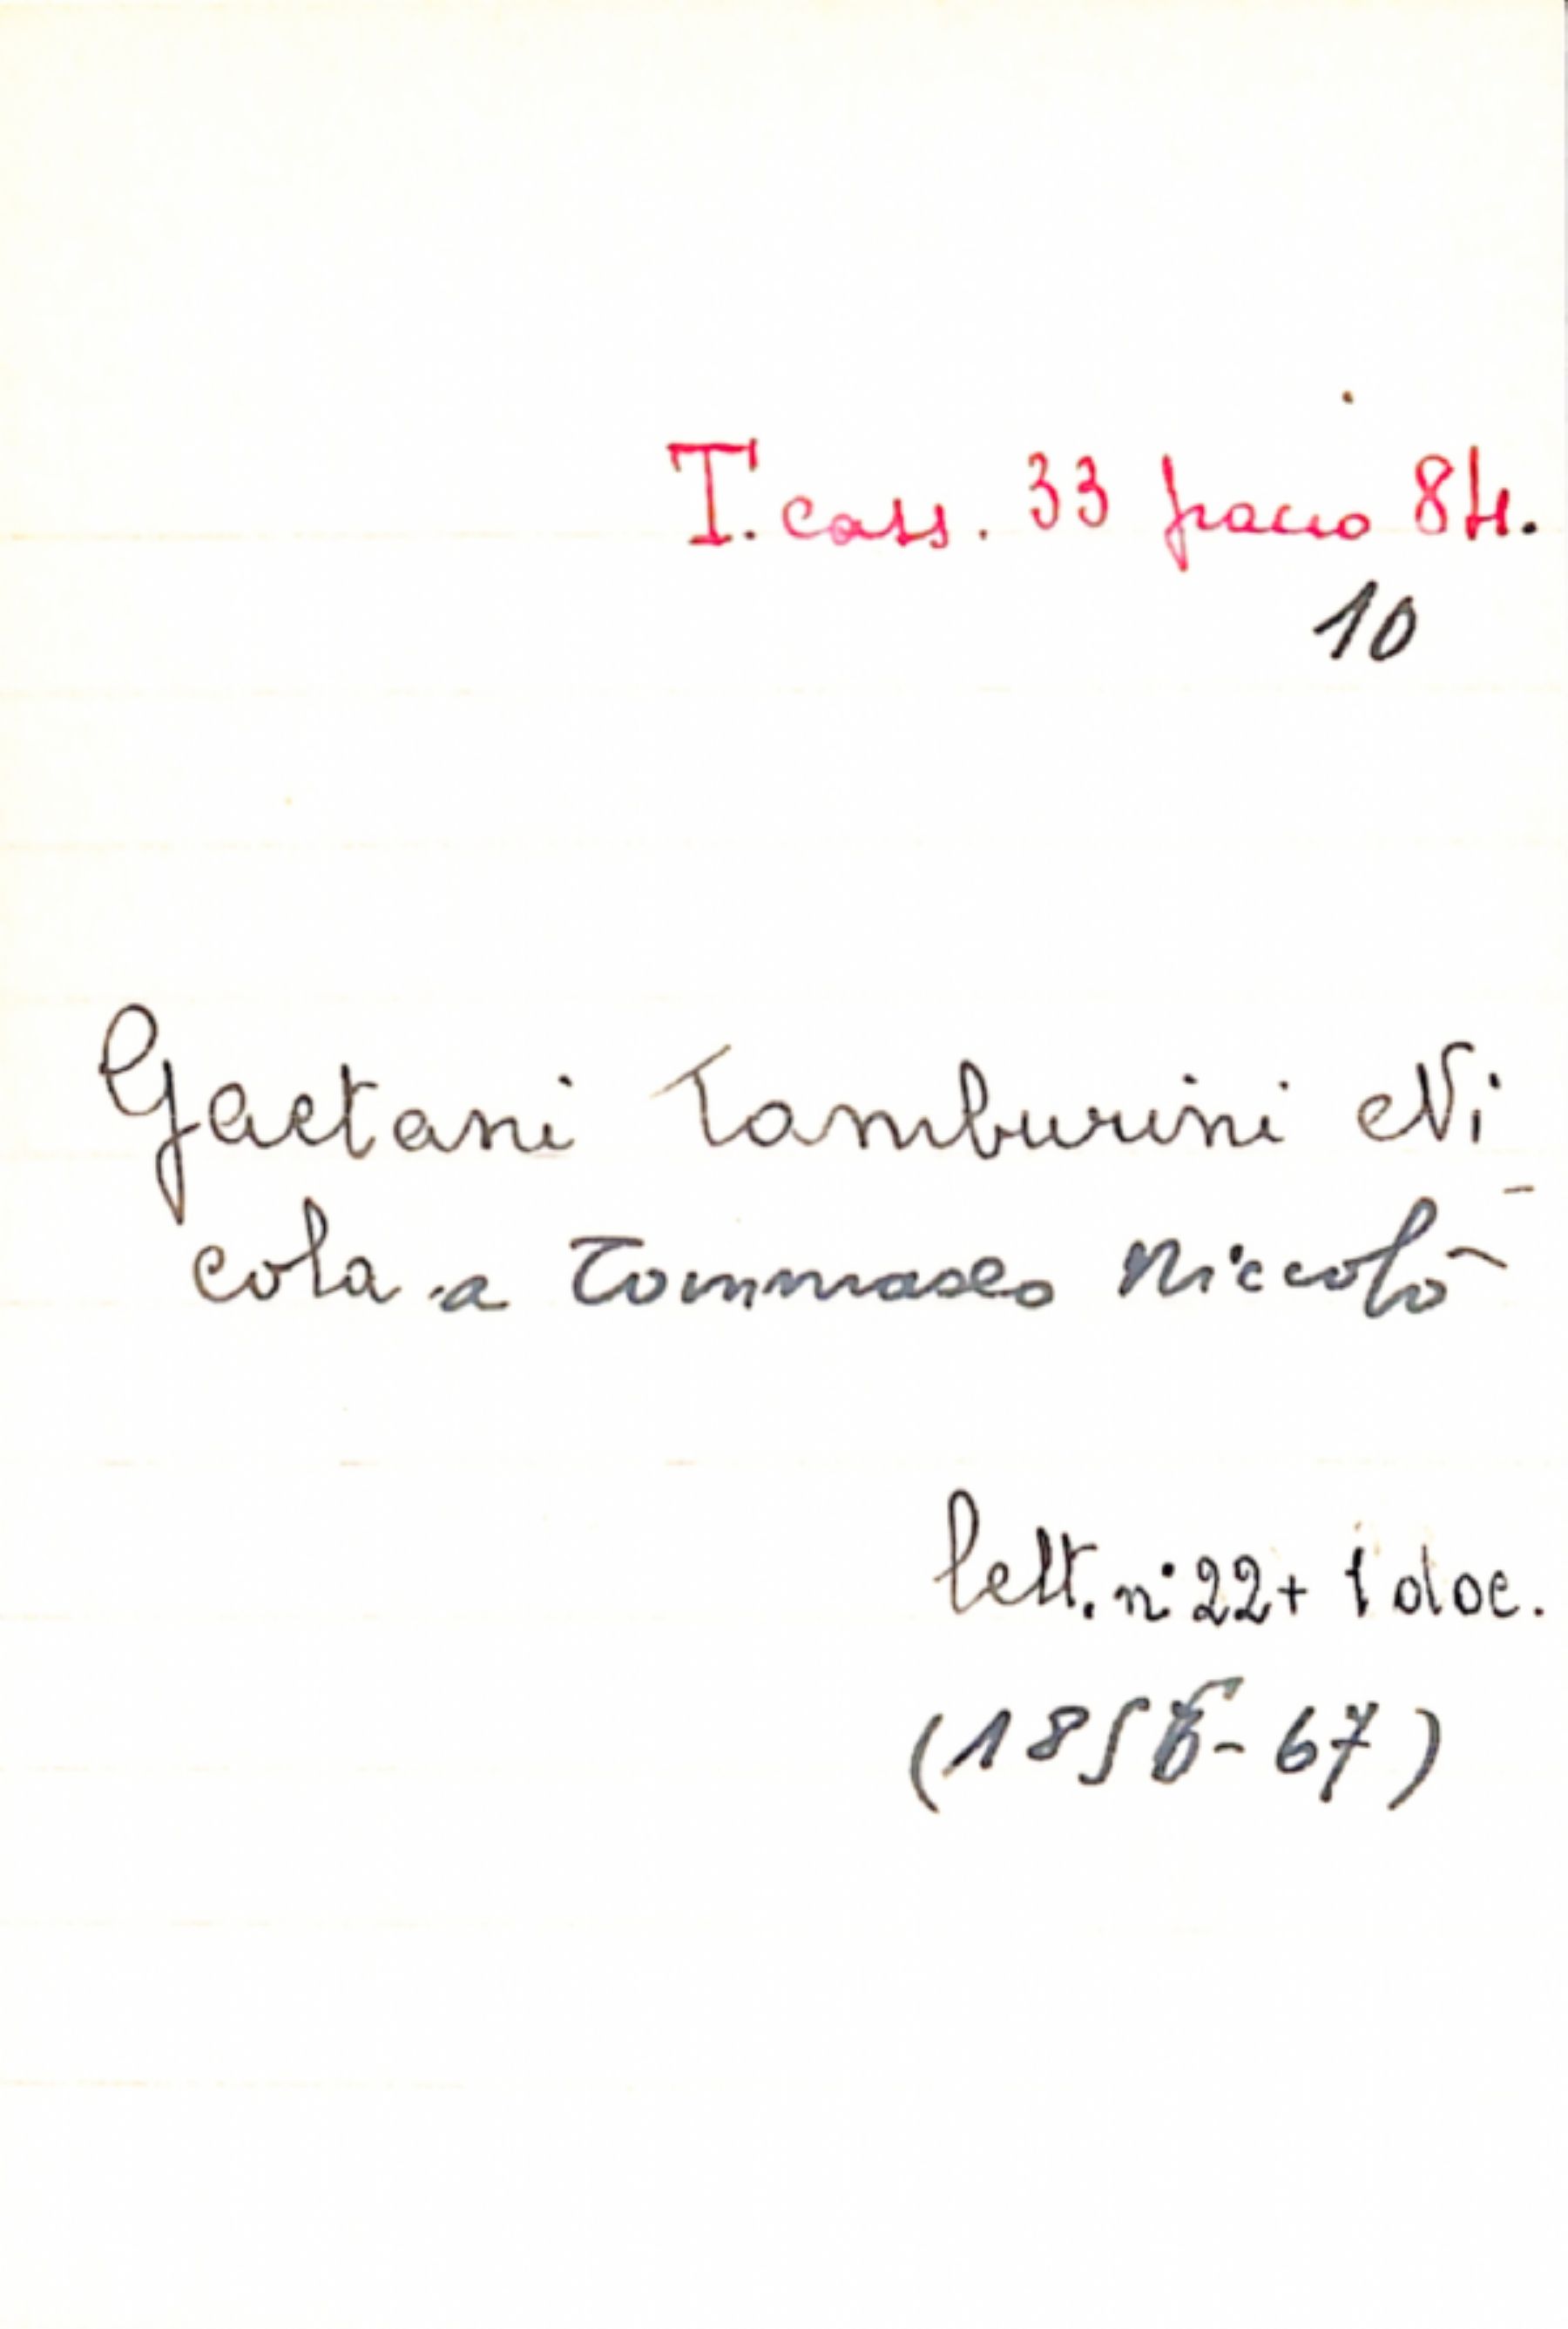 T. cass. 33 pacco 84.
10
Gaetani Tamburini Ni-
cola a Tommaseo Niccolò
lett. n° 22 + 1 doc.
(1856-67)